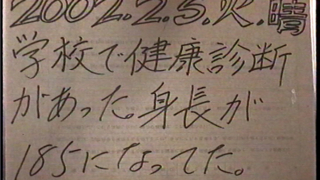 2002.2.5.火.晴
学校で健康診断
があった。身長が
185になってた。